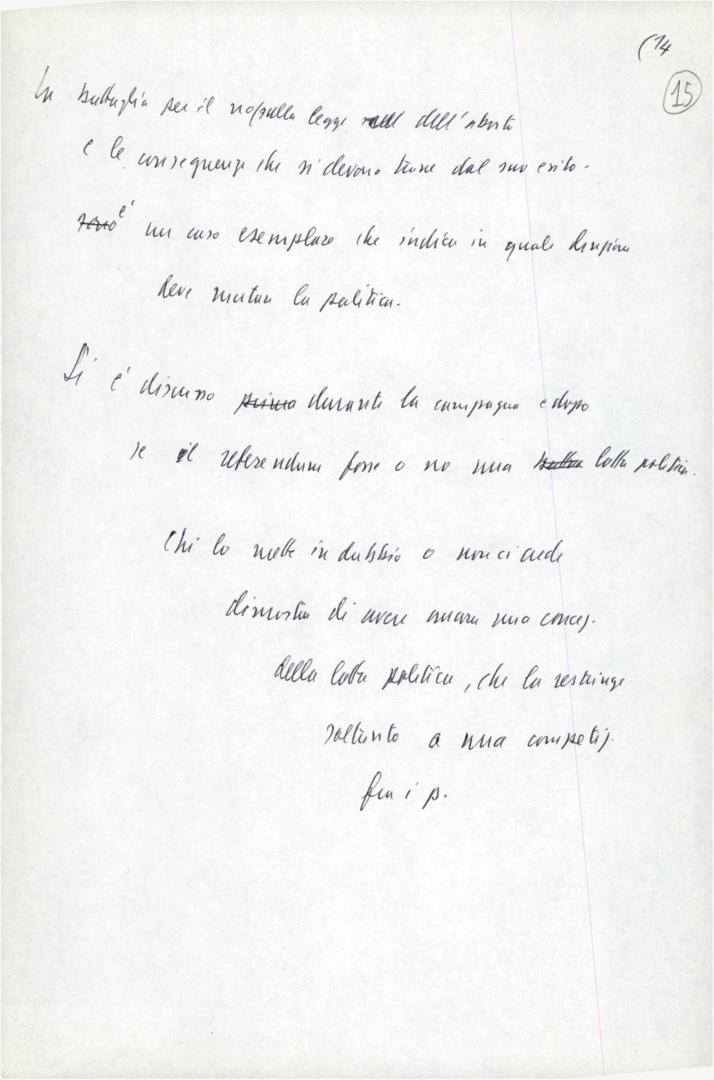 (14
15
La battaglia per il no sulla legge dell'aborto
e le conseguenze che si devono trarre dal suo esito.
sono è un caso esemplare che indica in quale direzione
deve mutare la politica.
Si è discusso prima durante la campagna e dopo
se il referendum fosse o no una lotta politica.
Chi lo mette in dubbio o non ci crede
dimostra di avere ancora una concez.
della lotta politica, che la restringe
soltanto a una competiz.
fra i p.